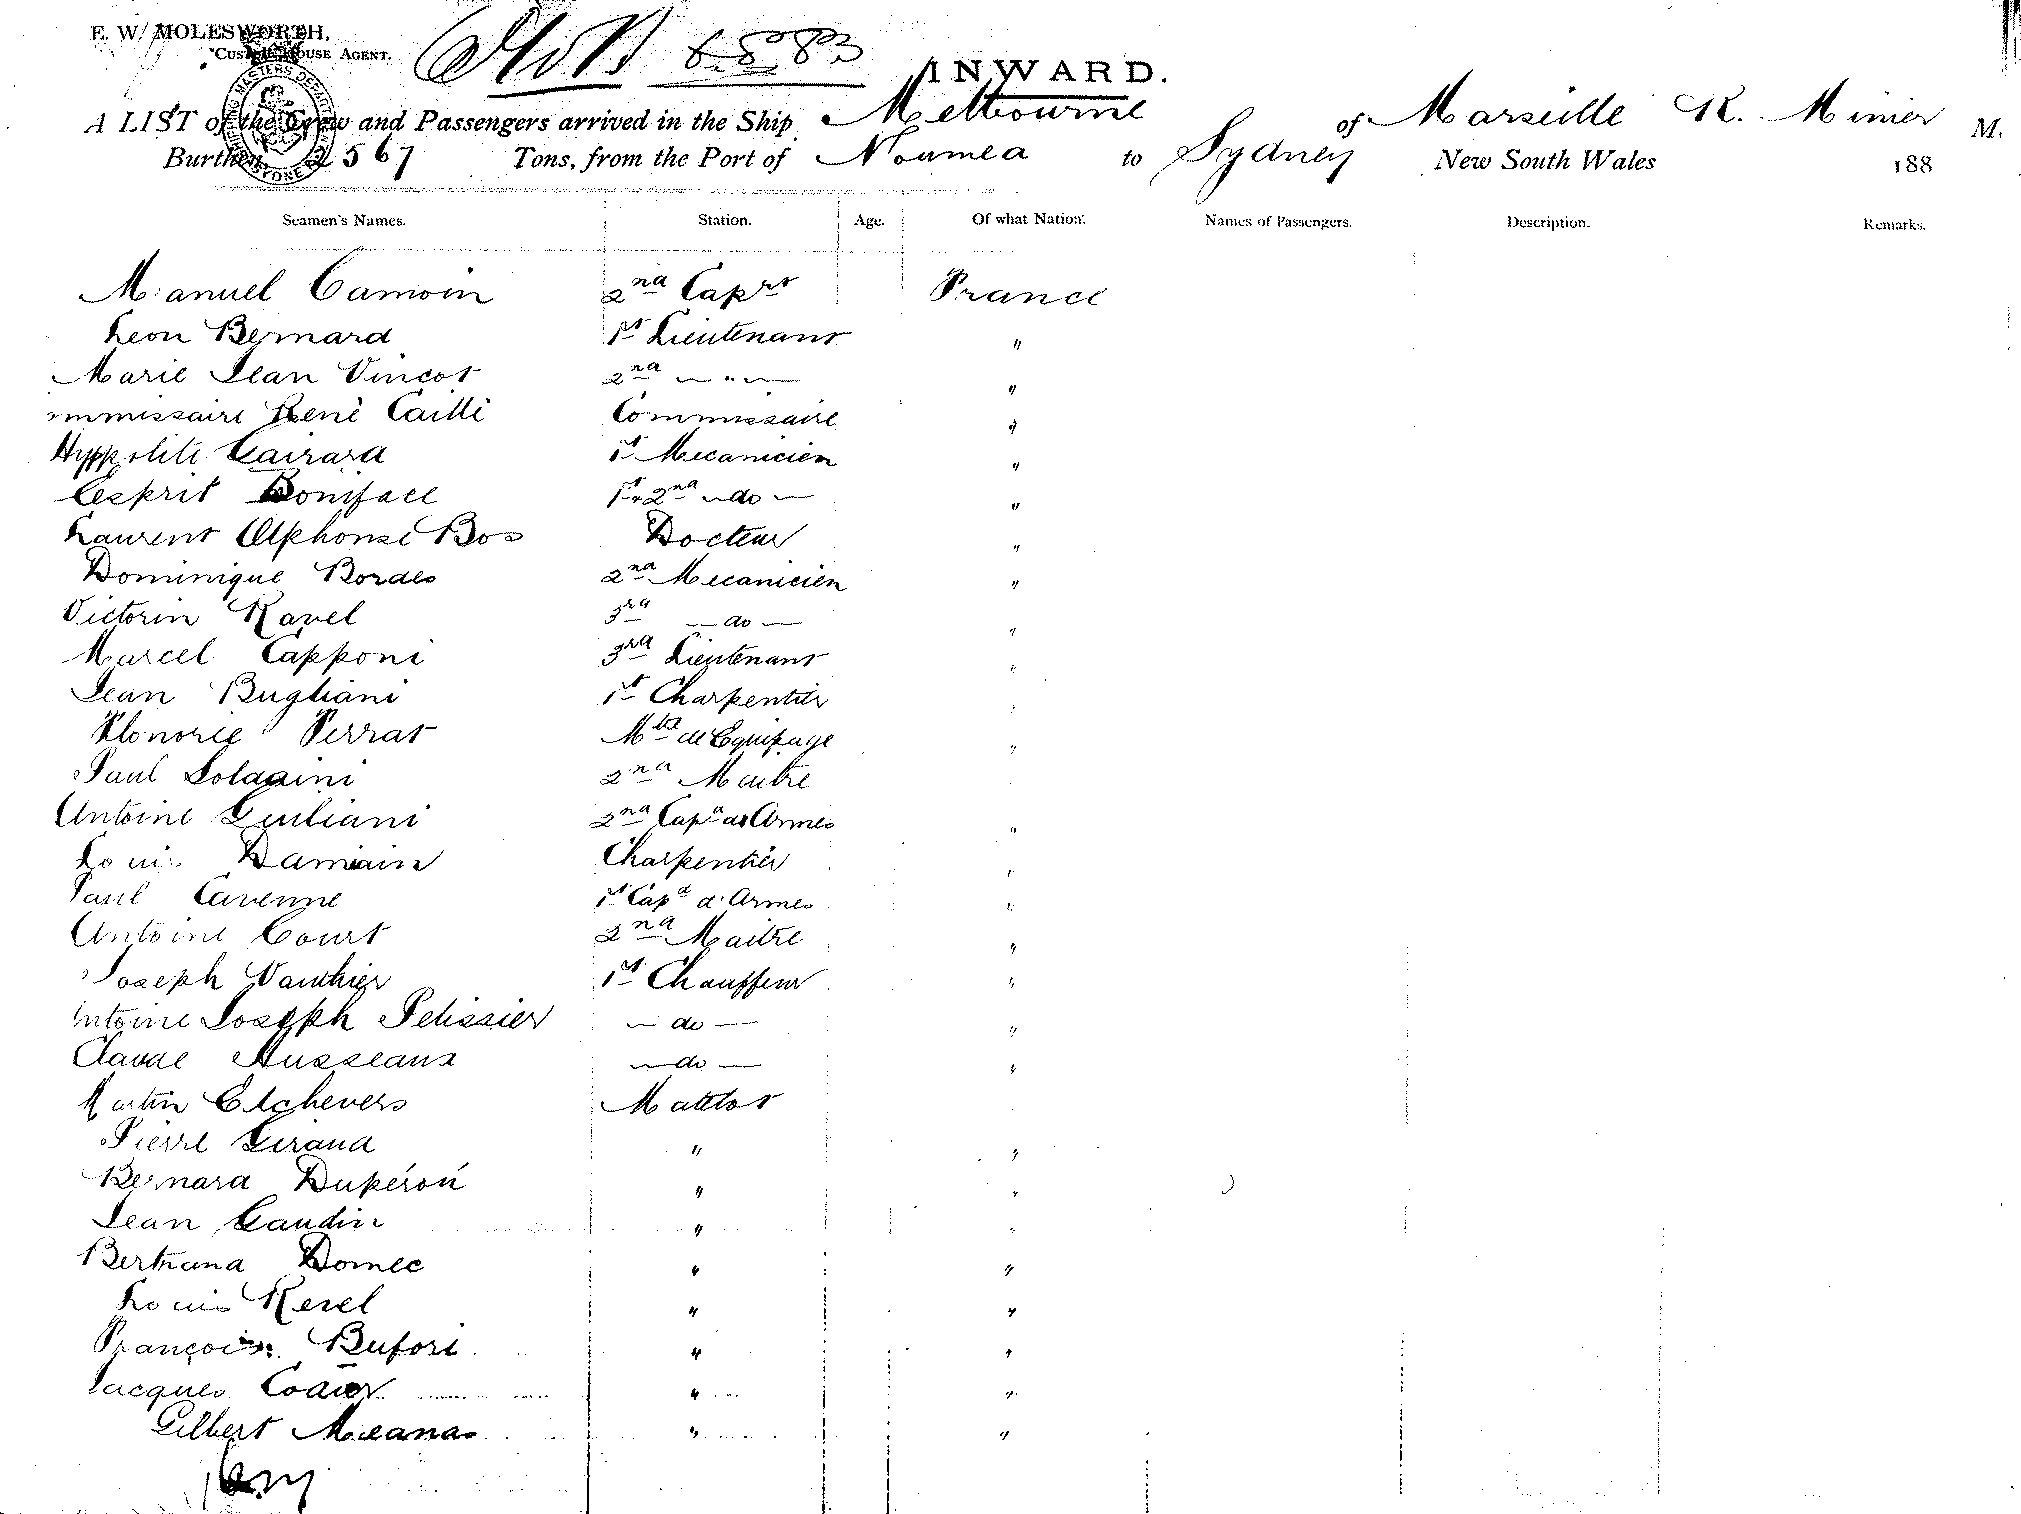 E. W. MOLESWORTH,
Custom House Agent.
6.8.83
INWARD.
A LIST of the Crew and Passengers arrived in the Ship Melbourne of Marseille R. Minier M.
Burthen 2567 Tons, from the Port of Noumea to Sydney New South Wales 188
Seamen's Names. Station. Age. Of what Nation. Names of Passengers. Description. Remarks.
Manuel Camoin 2nd Capt France
Leon Bernard 1st Lieutenant "
Marie Jean Vincot 2nd — " — "
ommissaire René Caillé Commissaire "
Hyppolite Gairard 1st Mecanicien "
Esprit Boniface 1st 2nd — do — "
Laurent Alphonse Bos Docteur "
Dominique Bordes 2nd Mecanicien "
Victorin Ravel 3rd — do — "
Marcel Capponi 3rd Lieutenant "
Jean Bugliani 1st Charpentier "
Honoree Perrat Mtre de Equipage "
Paul Soldaini 2nd Maitre
Antoine Giuliani 2nd Capn d'Armes "
Louis Damiain Charpentier "
Paul Cavenne 1st Cap d'Armes "
Antoine Court 2nd Maitre "
Joseph Vauthier 1st Chauffeur "
Antoine Joseph Pelissier — do — "
Claude Ausseaux — do — "
Martin Etchevers Matelot
Pierre Giraud " "
Bernard Dupéron " "
Jean Gaudin " "
Bertrand Domec " "
Louis Revel " "
François Bufort " "
Jacques " "
Gilbert " "